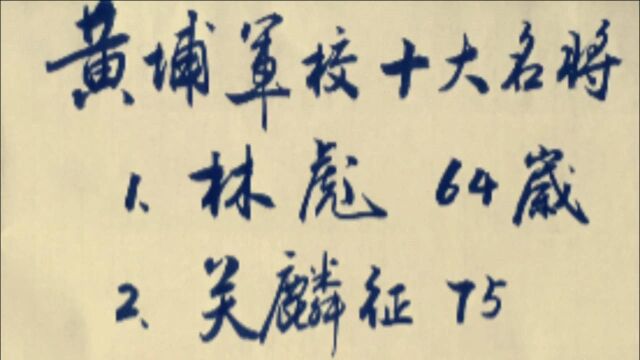 黄埔軍校十大名将
1、林彪 64歲
2、关麟征 75